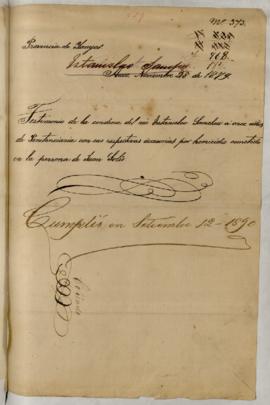 Nº 373.
Provincia de
Estanislao Sanchez
Noviembre 28 de 1879.
Testimonio de la condena del reo Estanislao Sanchez a once años
de Penitenciaria con sus respectivas accesorias por homicidio cometido
en la persona de Juan Solis
Cumplió en Setiembre 12 - 1890